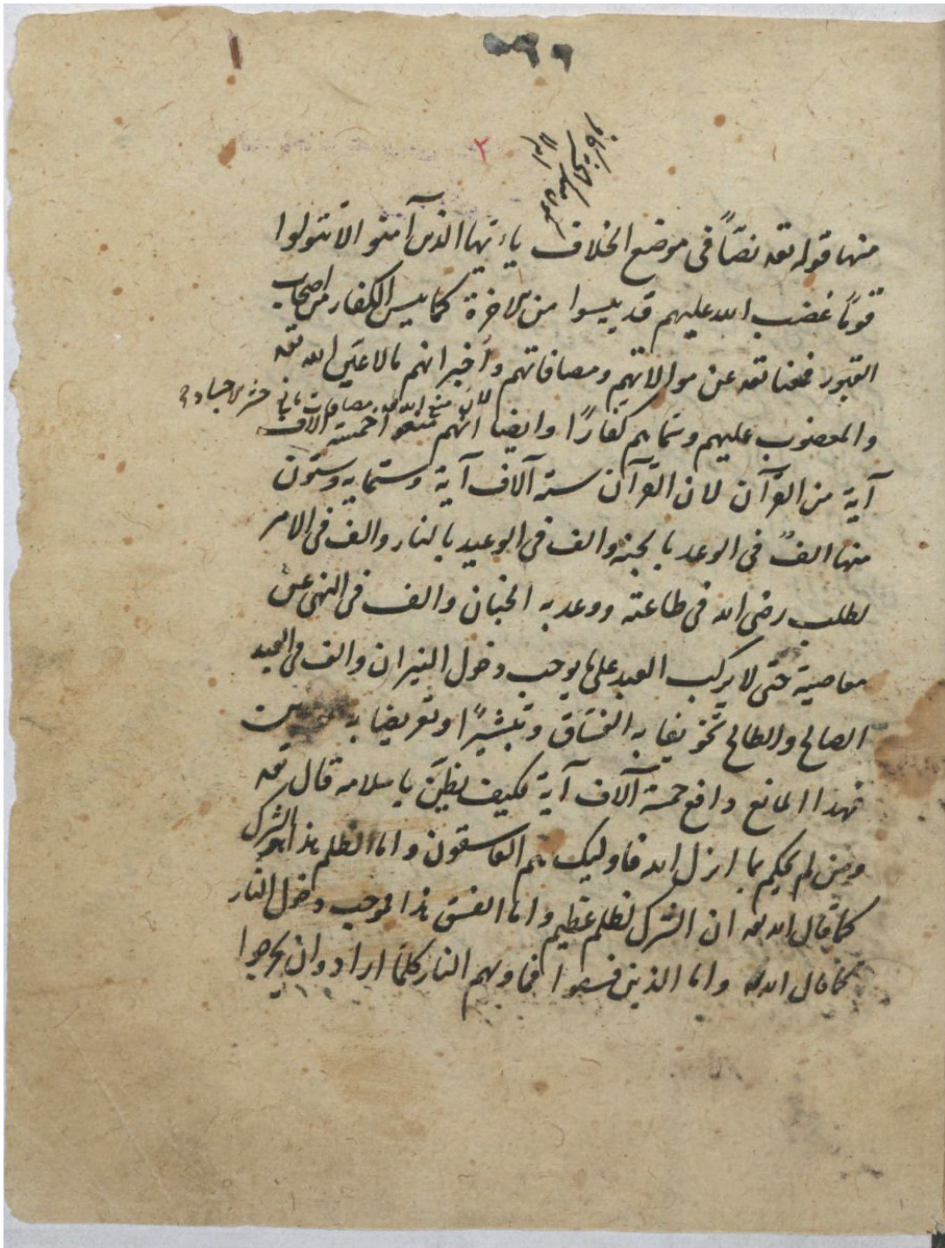 منها قوله تعه نصّاً فى موضع الخلاف ياءيّها الذين آمنو الا تتولوا
قوماً غضب الله عليهم قد ييسوا من الاخرة كما ييس الكفار من اصحاب
القبور فمنعنا تعه عن موالاتهم ومصافاتهم وأخبر انهم الله تعه
والمغضوب عليهم وسمّاهم كفارًا وايضا انهم خمسة آلاف
آية من القرآن لان القرآن ستة آلاف آية وستمايه وستون
منها الفٌ فى الوعد بالجنة والف فى الوعيد بالنار والف فى الامر
لطلب رضى الله فى طاعته ووعد به الجنان والف فى النهى عن
معاصية حتى لا يركب العبد على ما يوجب دخول النيران والف فى
الصالح والطالح تخويفا به الفسّاق وتبشيرًا وتعريضا به
فهذا المانع دافع خمسة آلاف آية فكيف يظنّ باسلامه قال تعه
ومن لم يحكم بما انزل الله فاوليك هم الفاسقون واما الظلم هذا هو الشرك
كما قال الله تعه ان الشرك لظلم عظيم واما الفسق هذا موجب دخول النار
كما قال الله تعه واما الذين فسقوا فماويهم النار كلما ارادوا ان يخرجوا